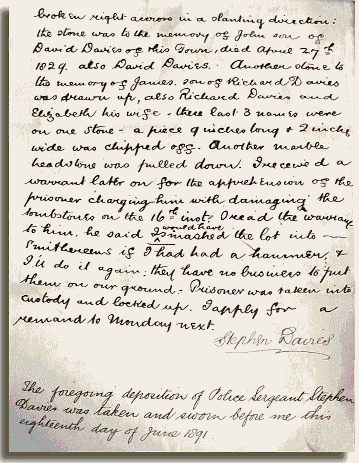 broken right across in a slanting direction:
the stone was to the memory of John son of
David Davies of this Town, died April 27th
1829. also David Davies. Another stone to
the memory of James. son of Richard Davies
was drawn up, also Richard Davies and
Elizabeth his wife - these last 3 names were
on one stone - a piece 9 inches long & 2 inches
wide was chipped off. Another marble
headstone was pulled down. I received a
warrant later on for the apprehension of the
prisoner charging him with damaging the
tombstones on the 16th inst. I read the warrant
to him. he said I would have smashed the lot into
Smithereens if I had had a hammer, &
I'll do it again; they have no business to put
them on our ground - Prisoner was taken into
custody and locked up. I apply for a
remand to Monday next.
Stephen Davies
The foregoing deposition of Police Sergeant Stephen
Davies was taken and sworn before me this
eighteenth day of June 1891